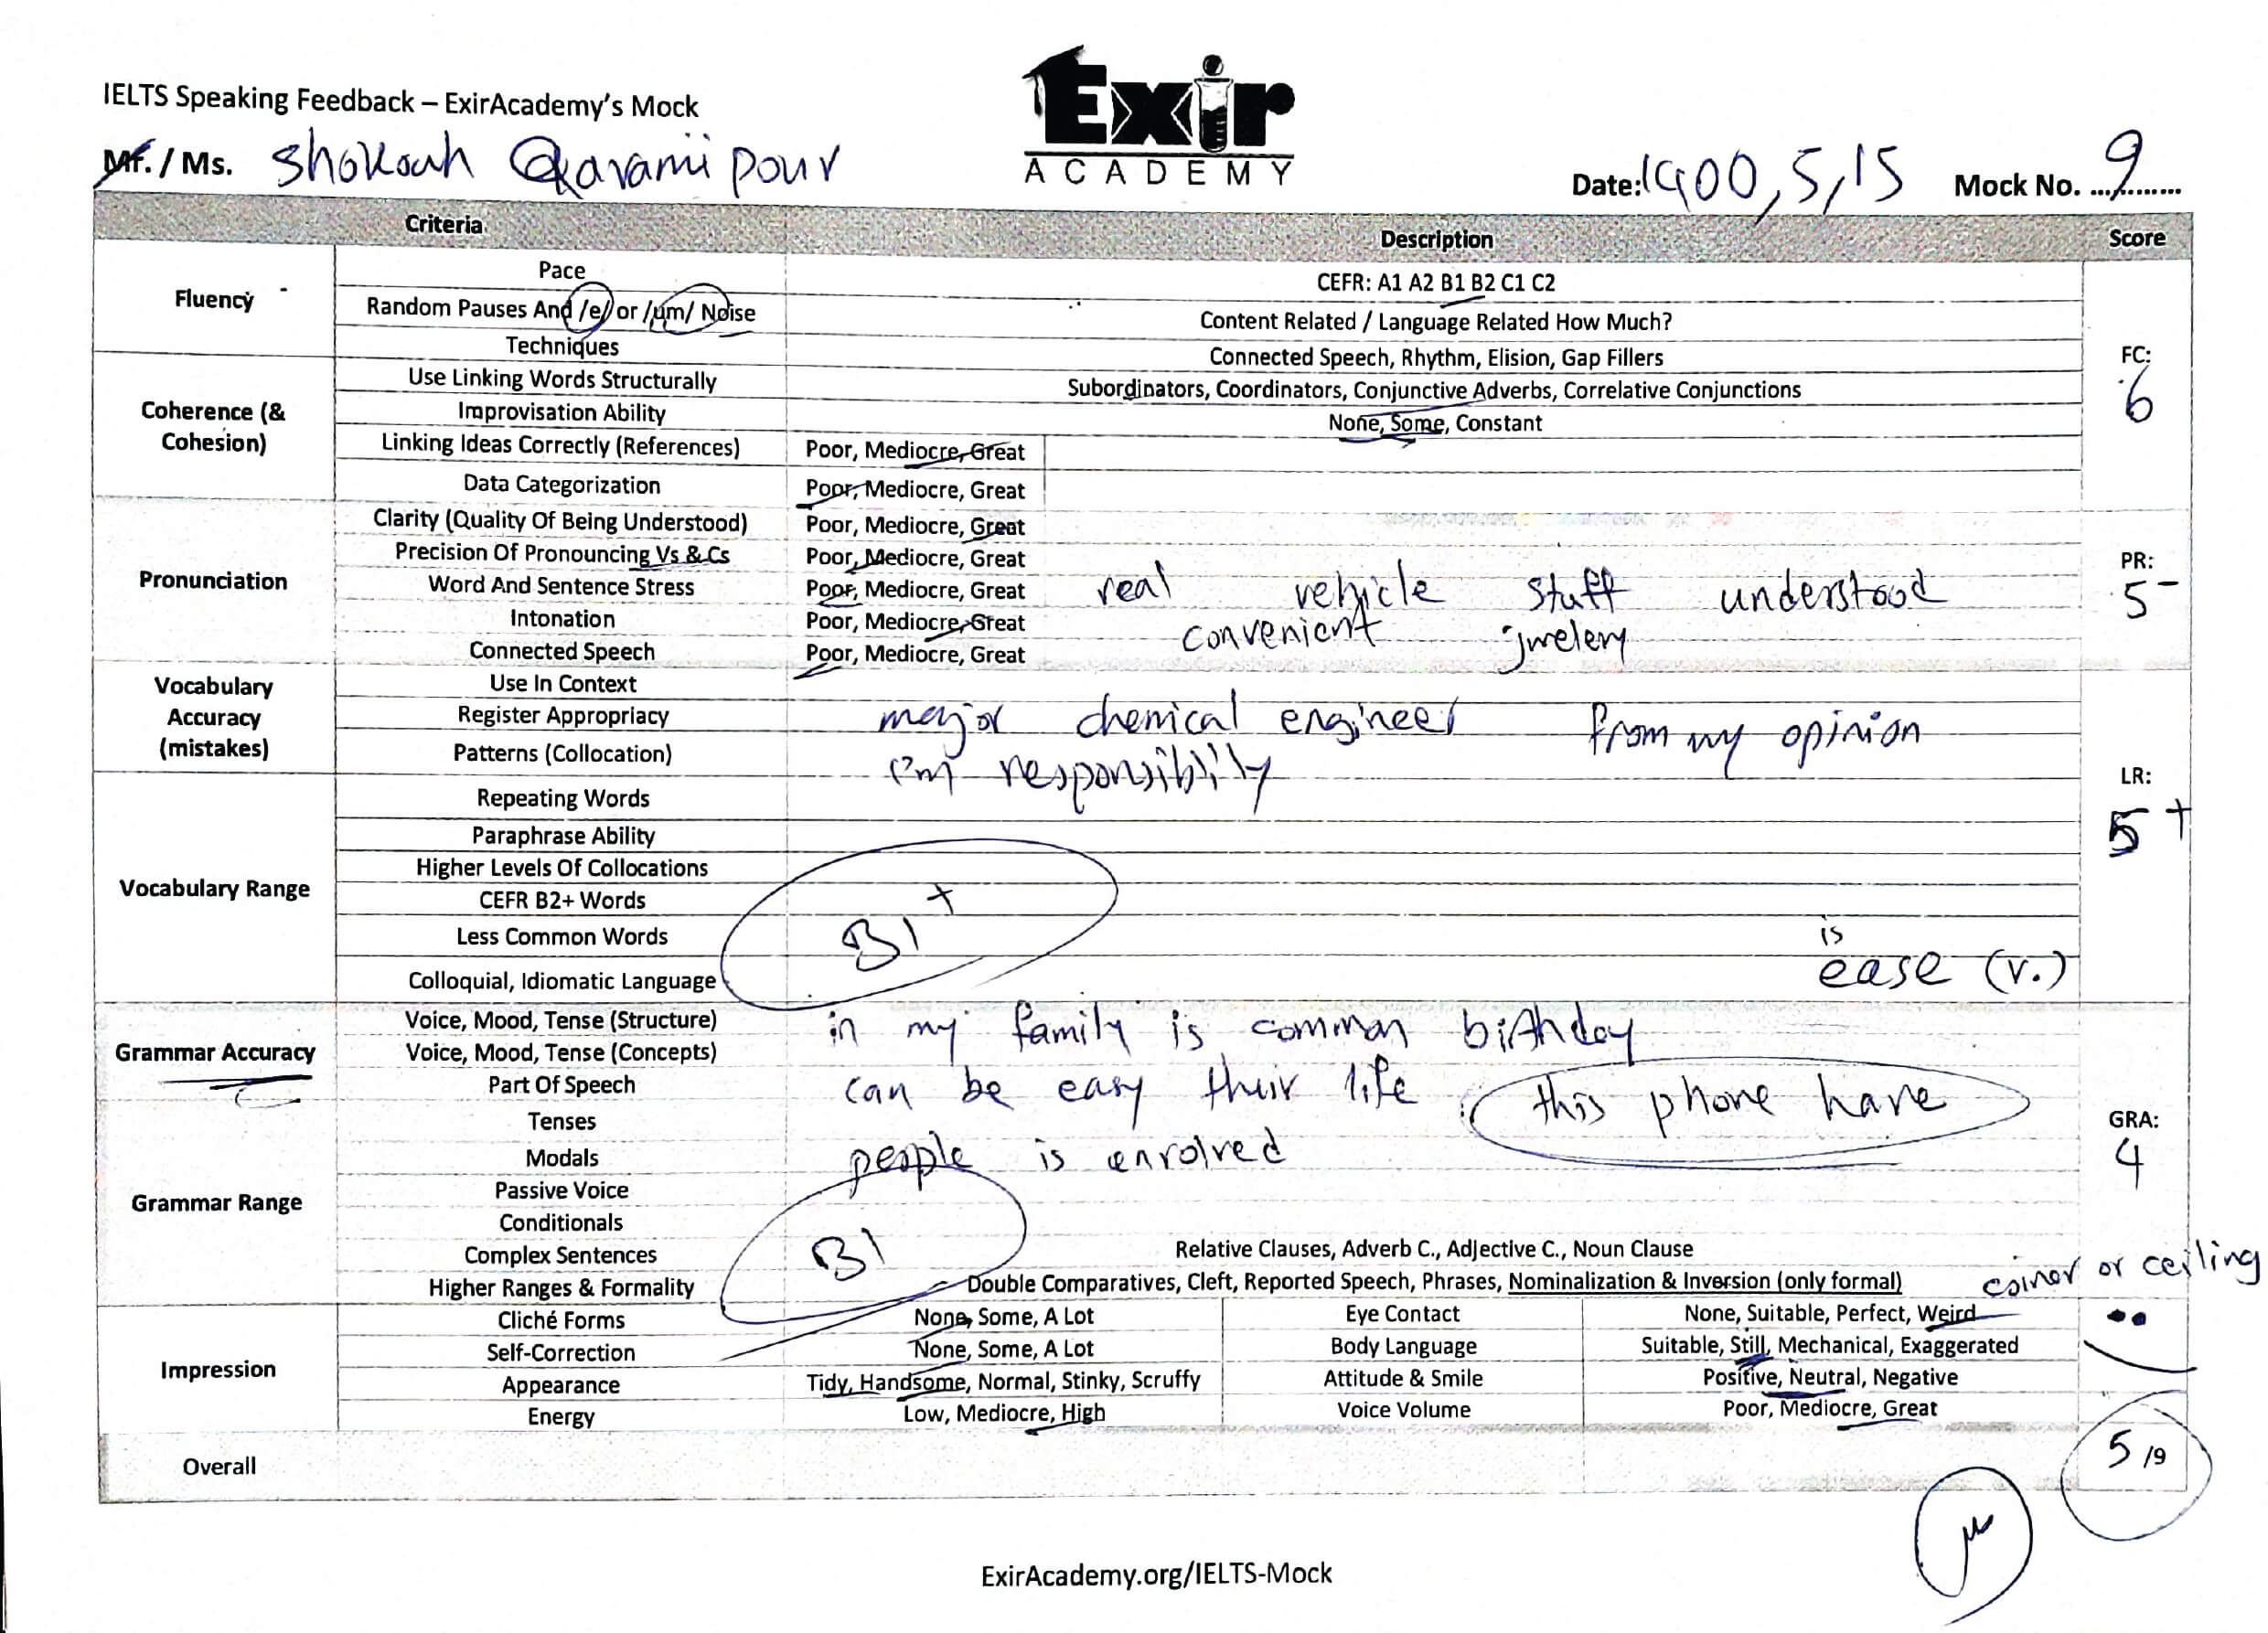 IELTS Speaking Feedback – ExirAcademy's Mock
Exir
ACADEMY
Mr. / Ms. Shokouh Qaramipour Date: 1400, 5, 15 Mock No. 9
Criteria Description Score
Fluency Pace CEFR: A1 A2 B1 B2 C1 C2
Random Pauses And /e/ or /um/ Noise Content Related / Language Related How Much?
Techniques Connected Speech, Rhythm, Elision, Gap Fillers
FC: 6
Coherence (& Cohesion) Use Linking Words Structurally Subordinators, Coordinators, Conjunctive Adverbs, Correlative Conjunctions
Improvisation Ability None, Some, Constant
Linking Ideas Correctly (References) Poor, Mediocre, Great
Data Categorization Poor, Mediocre, Great
Pronunciation Clarity (Quality Of Being Understood) Poor, Mediocre, Great
Precision Of Pronouncing Vs & Cs Poor, Mediocre, Great
PR: 5-
Word And Sentence Stress Poor, Mediocre, Great real vehicle stuff understood
Intonation Poor, Mediocre, Great convenient jwelery
Connected Speech Poor, Mediocre, Great
Vocabulary Accuracy (mistakes) Use In Context
Register Appropriacy major chemical engineer from my opinion
Patterns (Collocation) I'm responsibility
LR: 5+
Vocabulary Range Repeating Words
Paraphrase Ability
Higher Levels Of Collocations
CEFR B2+ Words
Less Common Words B1+ is
Colloquial, Idiomatic Language ease (v.)
Grammar Accuracy Voice, Mood, Tense (Structure) in my family is common birthday
Voice, Mood, Tense (Concepts)
Part Of Speech can be easy their life this phone have
Grammar Range Tenses
GRA: 4
Modals people is
Passive Voice
Conditionals
Complex Sentences B1 Relative Clauses, Adverb C., Adjective C., Noun Clause
Higher Ranges & Formality Double Comparatives, Cleft, Reported Speech, Phrases, Nominalization & Inversion (only formal) or ceiling
Impression Cliché Forms None, Some, A Lot Eye Contact None, Suitable, Perfect, Weird
Self-Correction None, Some, A Lot Body Language Suitable, Still, Mechanical, Exaggerated
Appearance Tidy, Handsome, Normal, Stinky, Scruffy Attitude & Smile Positive, Neutral, Negative
Energy Low, Mediocre, High Voice Volume Poor, Mediocre, Great
Overall 5 /9
ExirAcademy.org/IELTS-Mock